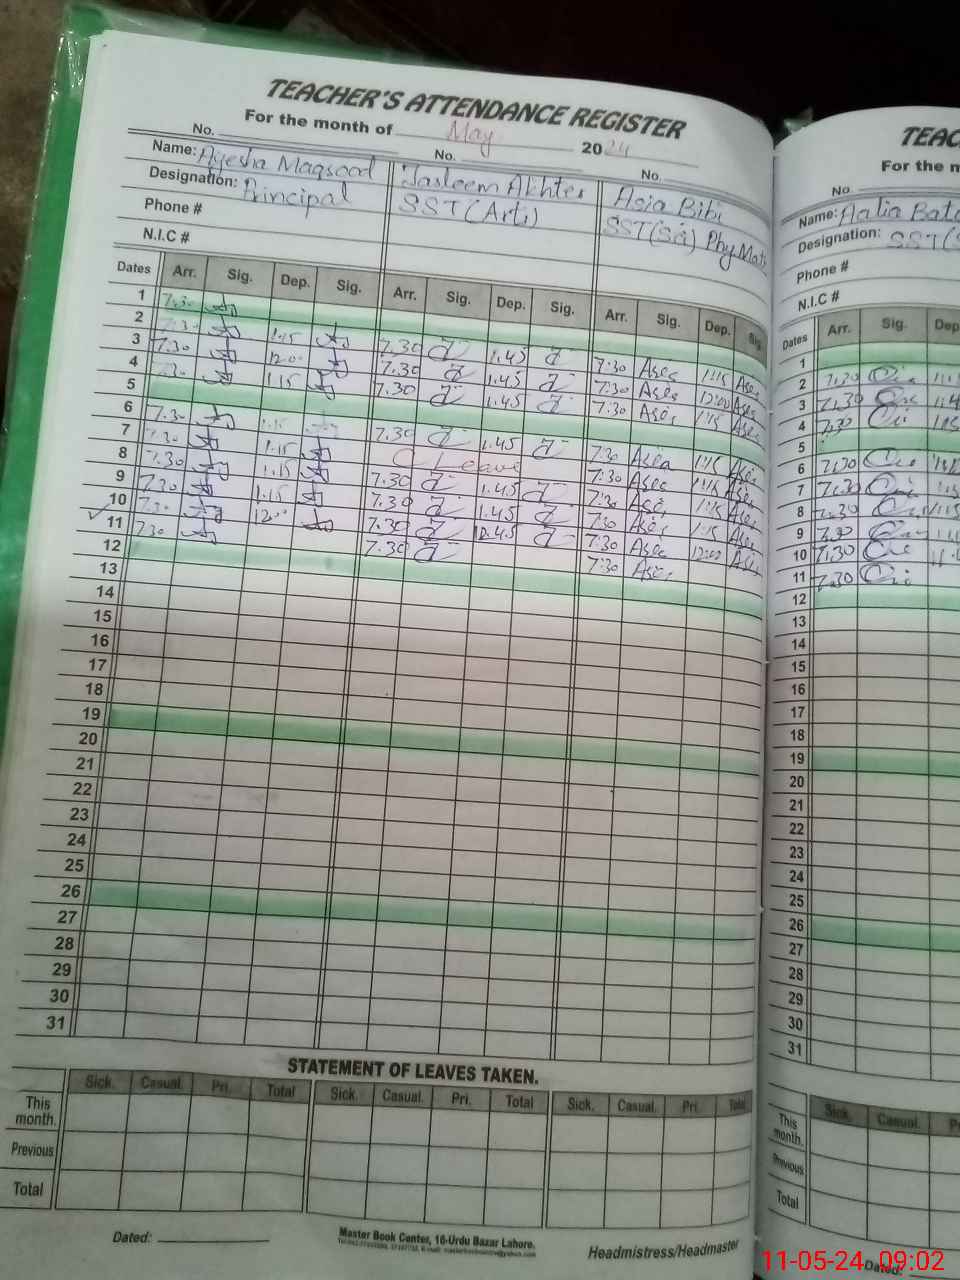 TEACHER'S ATTENDANCE REGISTER
For the month of May 2024
No. No. No.
Name: Ayesha Maqsood Tasleem Akhter Asia Bibi
Designation: Principal SST (Arts) SST (Sci) Phy. Math
Phone #
N.I.C #
Dates Arr. Sig. Dep. Sig. Arr. Sig. Dep. Sig. Arr. Sig. Dep. Sig.
1 7.30
2 7.30 1.15 7.30 1.45 7:30 1:15
3 7.30 12.00 7.30 1.45 7:30 12:00
4 7.30 1.15 7.30 1.45 7:30 1:15
5
6 7.30 1.15 7.30 1.45 7:30 1:15
7 7.30 1.15 C Leave 7:30 1:15
8 7.30 1.15 7.30 1.45 7:30 1:15
9 7.30 1.15 7.30 1.45 7:30 1:15
10 7.30 12.00 7.30 12.45 7:30 12:00
11 7.30 7.30 7:30
12
13
14
15
16
17
18
19
20
21
22
23
24
25
26
27
28
29
30
31
STATEMENT OF LEAVES TAKEN.
Sick. Casual. Pri. Total Sick. Casual. Pri. Total Sick. Casual. Pri. Total
This month.
Previous
Total
Dated:
Master Book Center, 16-Urdu Bazar Lahore.
Headmistress/Headmaster
TEAC
For the m
No.
Name: Aalia Bato
Designation: SST (S
Phone #
N.I.C #
Dates Arr. Sig. Dep
1
2 7.30
3 7.30
4 7.30
5
6 7.30
7 7.30
8 7.30
9 7.30
10 7.30
11 7.30
12
13
14
15
16
17
18
19
20
21
22
23
24
25
26
27
28
29
30
31
Sick. Casual. P
This month.
Previous
Total
Dated:
11-05-24 09:02